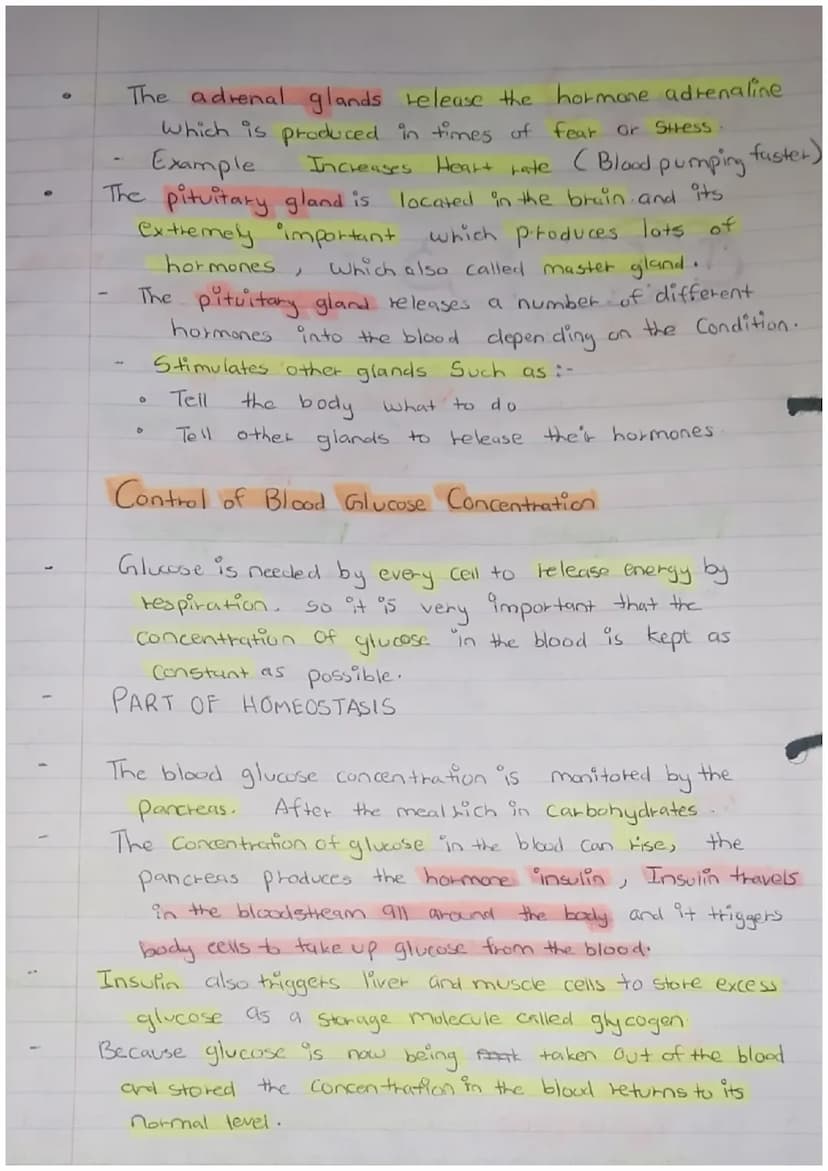 • The adrenal glands release the hormone adrenaline
which is produced in times of fear or stress.
- Example Increases Heart rate (Blood pumping faster)
• The pituitary gland is located in the brain and its
extremely important which produces lots of
hormones, which also called master gland.
- The pituitary gland releases a number of different
hormones into the blood depending on the Condition.
- Stimulates other glands Such as :-
• Tell the body what to do
• Tell other glands to release their hormones
Control of Blood Glucose Concentration
- Glucose is needed by every cell to release energy by
respiration. so it is very important that the
concentration of glucose in the blood is kept as
constant as possible.
- PART OF HOMEOSTASIS
- The blood glucose concentration is monitored by the
pancreas. After the meal rich in carbohydrates.
- The Concentration of glucose in the blood can rise, the
pancreas produces the hormone insulin, Insulin travels
in the bloodstream all around the body and it triggers
body cells to take up glucose from the blood.
- Insulin also triggers liver and muscle cells to store excess
glucose as a storage molecule called glycogen.
- Because glucose is now being taken out of the blood
and stored the concentration in the blood returns to its
normal level.